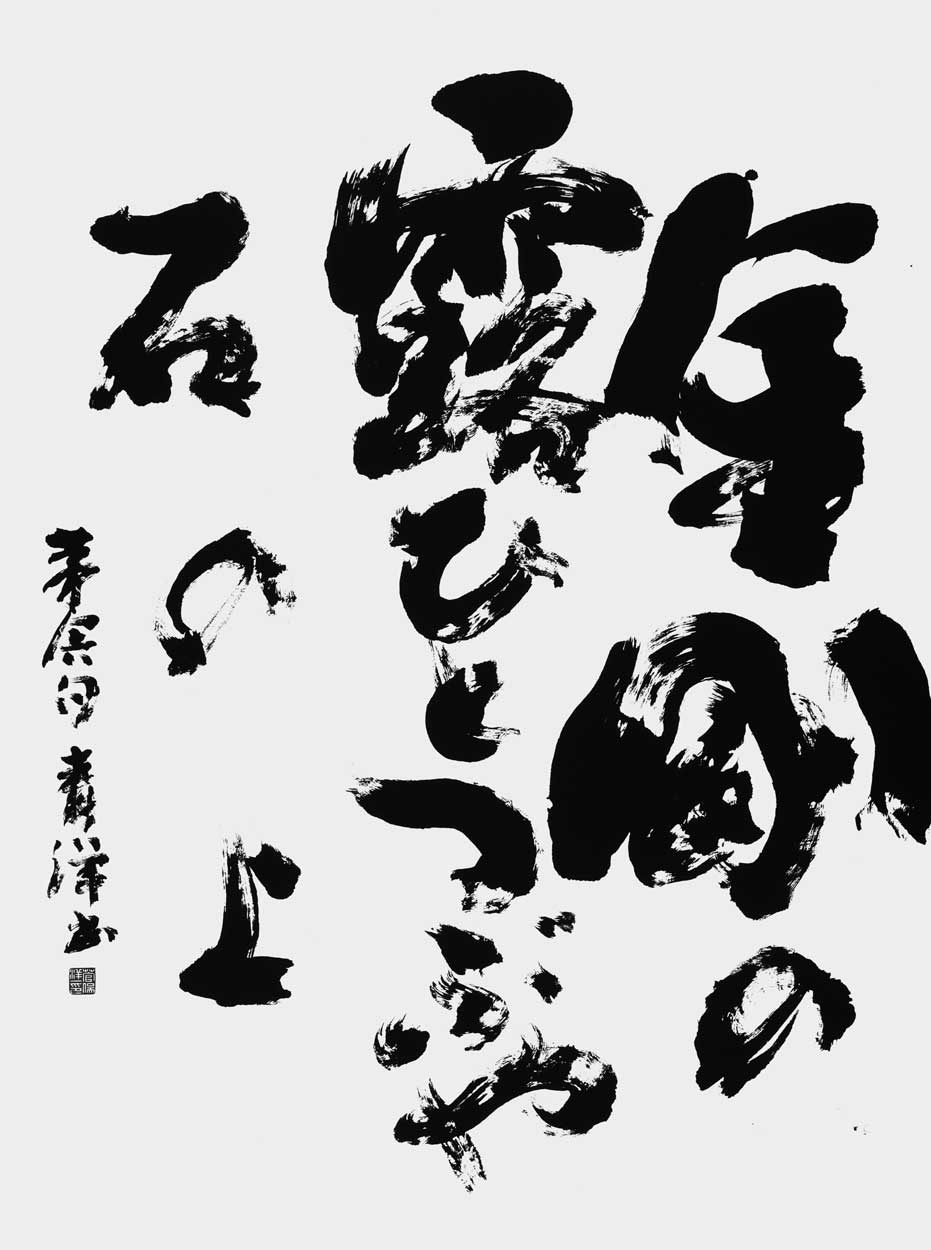 金剛の
露ひとつぶや
石の上
茅舎句